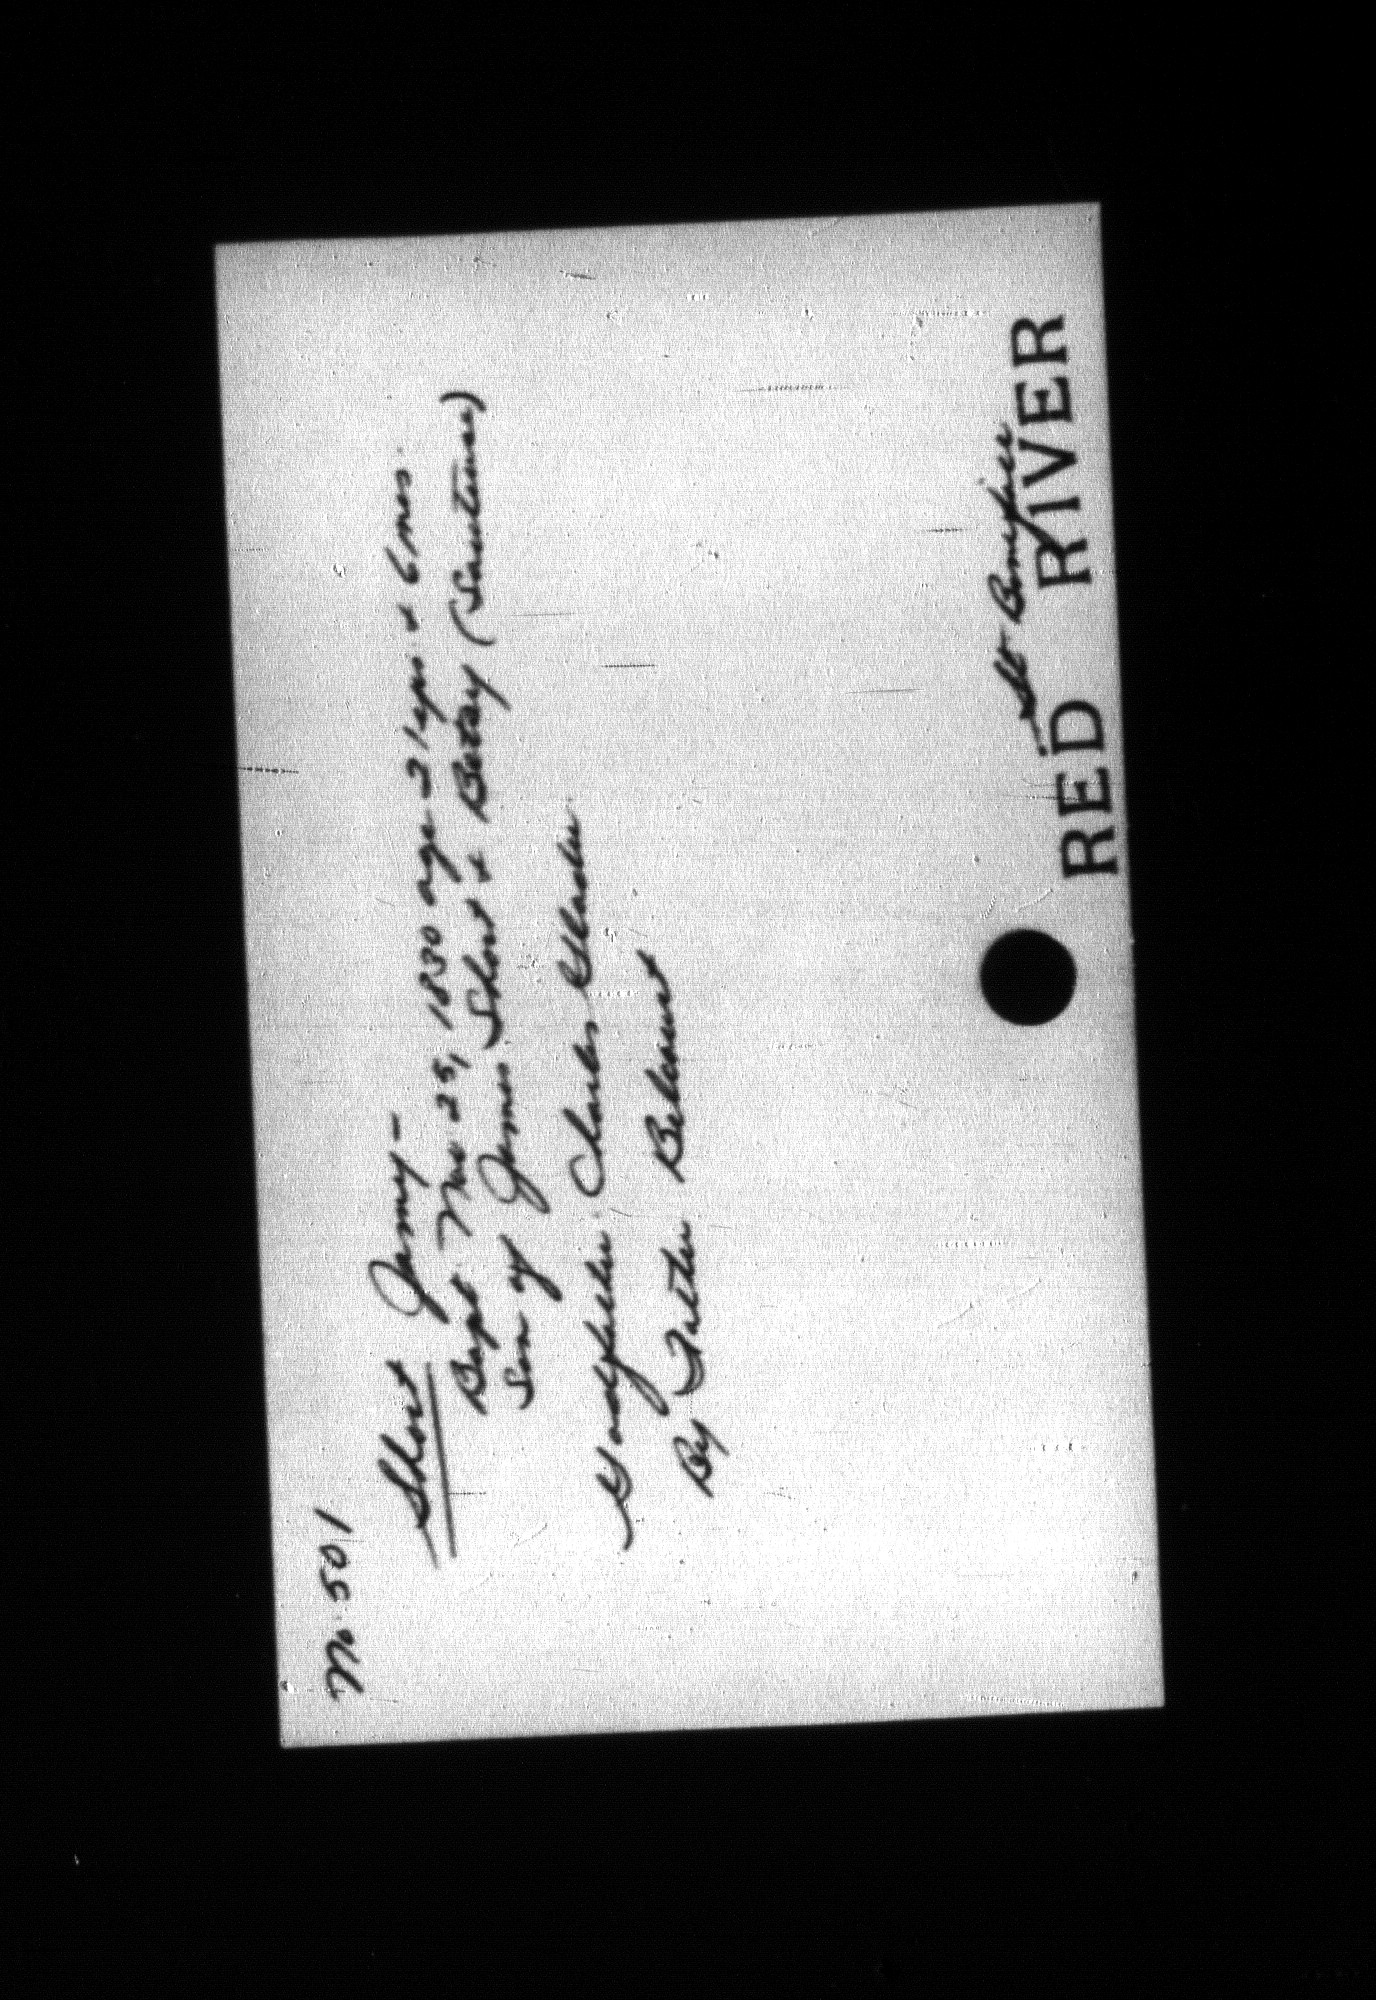 No. 501
Short Jamey -
Bapt. Nov 25, 1830 age 21 yrs & 6 mos.
Son of James Short & Betsy (Sauteuse)
Godfather Charles Gladu
By Father Belcourt
St Boniface
RED RIVER